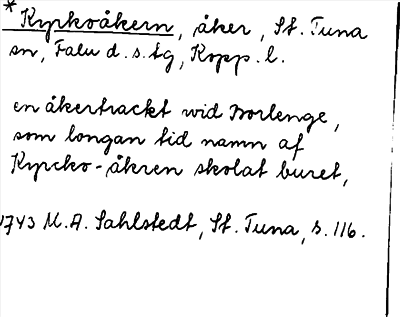 * Kyrkoåkern, åker, St. Tuna
sn, Falu d. s. tg, Kopp. l.
en åkertrackt wid Borlenge,
som longan tid namn af
Kyrcko-åkren skolat buret,
1743 M. A. Sahlstedt, St. Tuna, s. 116.